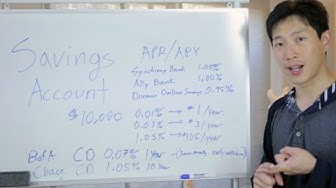 Savings
Account
APR/APY
Synchrony Bank 1.05%
Ally Bank 1.00%
Discover Online Savings 0.95%
$10,000
0.01% → $1/year
0.03% → $3/year
1.05% → $105/year
BofA CD 0.07% 1 Year
Chase CD 1.05% 10 Year